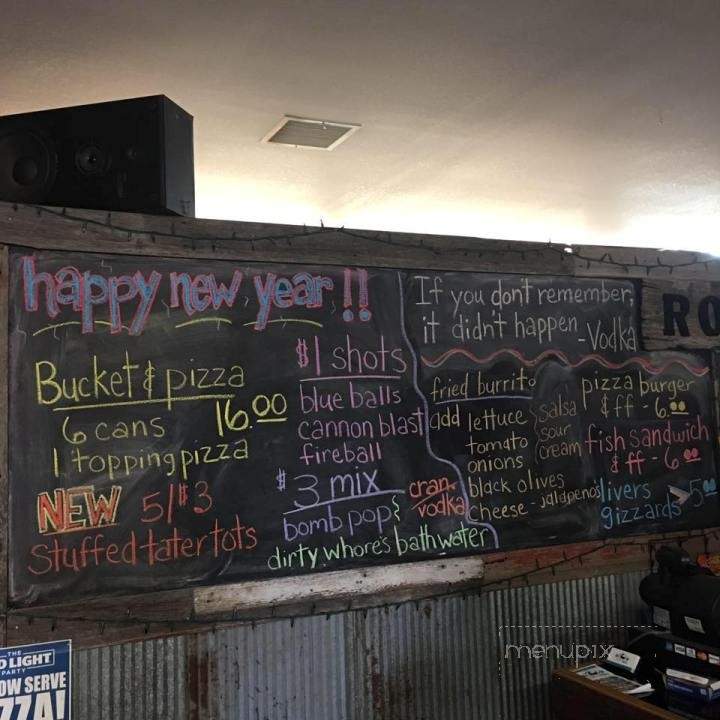 happy new year !!
Bucket & pizza
6 cans 16.00
1 topping pizza
NEW 5/$3
Stuffed tater tots
$1 shots
blue balls
cannon blast
fireball
$3 mix
bomb pop
cran-vodka
dirty whore's bathwater
If you don't remember,
it didn't happen -Vodka
fried burrito
add lettuce
tomato
onions
black olives
cheese - jalapenos
salsa
sour
cream
pizza burger
& ff - 6.00
fish sandwich
& ff - 6.00
livers
gizzards 5.00
RO
THE
D LIGHT
PARTY
OW SERVE
ZZA!
menupix